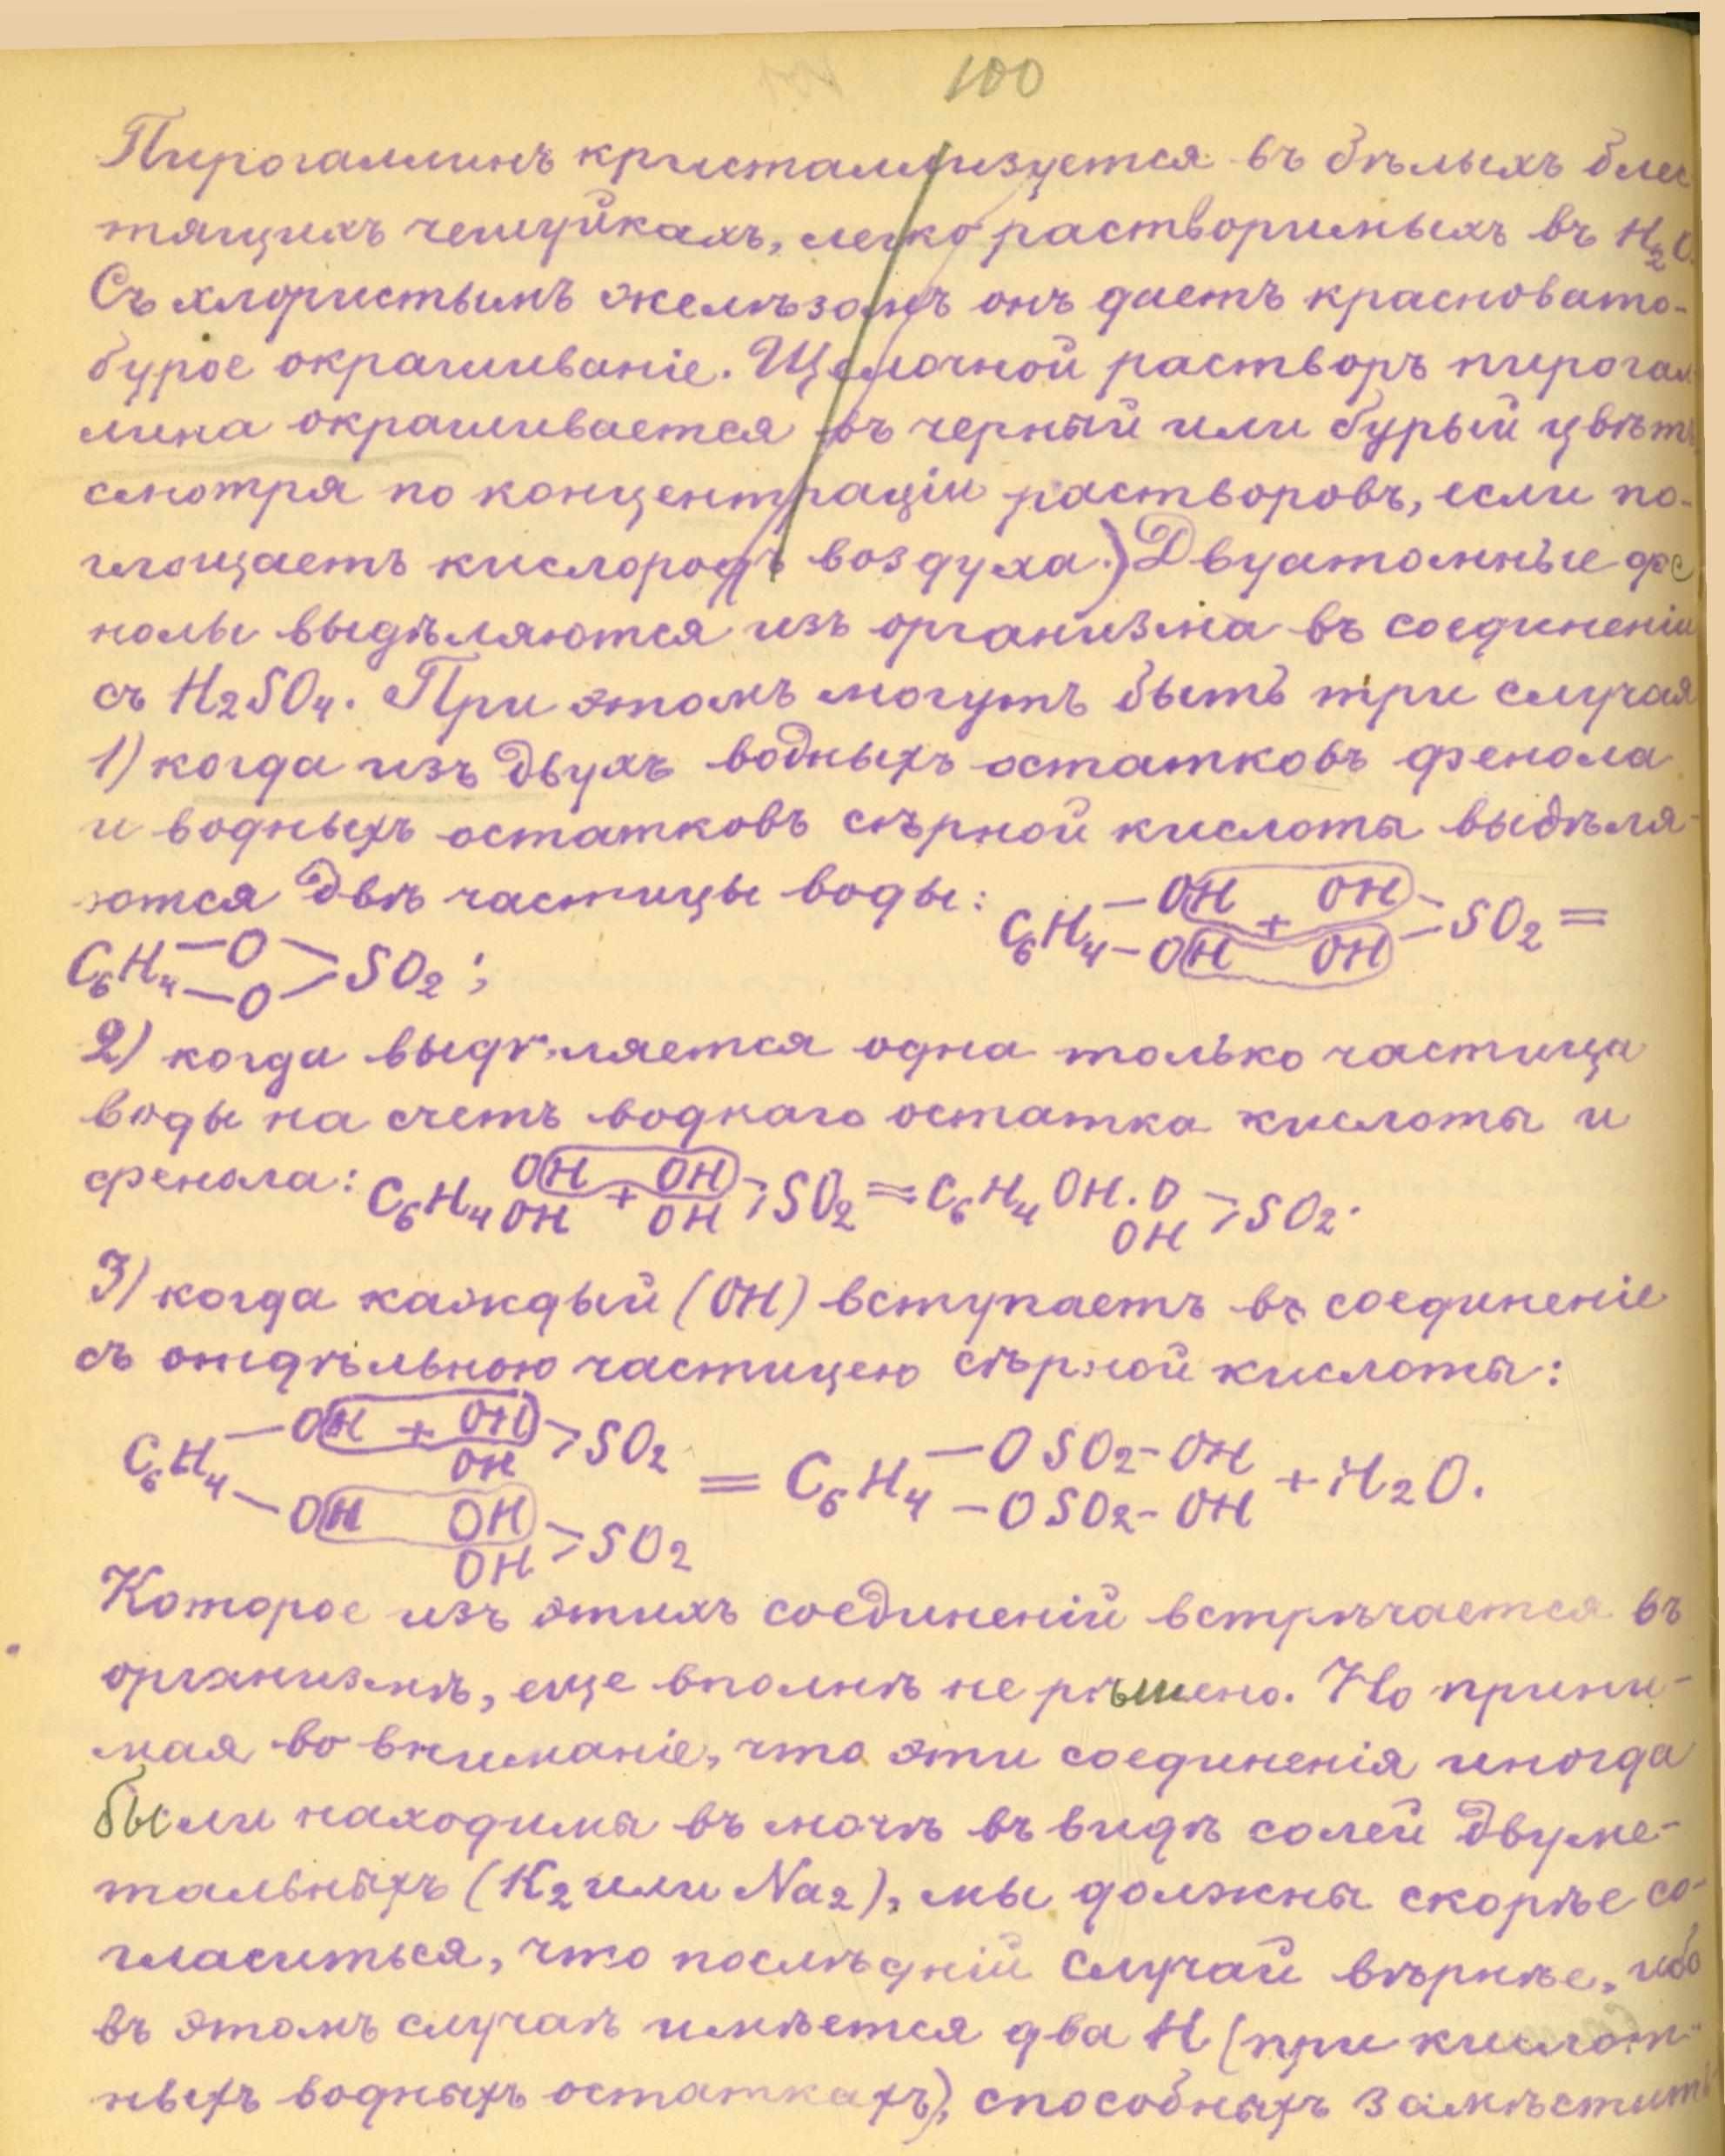 100
Пирогаллинъ кристаллизуется въ бѣлыхъ блес
тящихъ чешуйкахъ, легко растворимыхъ въ H₂O.
Съ хлористымъ желѣзомъ онъ даетъ красновато-
бурое окрашиваніе. Щелочной растворъ пирогал
лина окрашивается въ черный или бурый цвѣтъ
смотря по концентраціи растворовъ, если по-
глощаетъ кислородъ воздуха.) Двуатомные фе
нолы выдѣляются изъ организма въ соединеніи
съ H₂SO₄. При этомъ могутъ быть три случая
1) когда изъ двухъ водныхъ остатковъ фенола
и водныхъ остатковъ сѣрной кислоты выдѣля-
ются двѣ частицы воды:
C₆H₄ —OH + OH— —OH OH— SO₂ =
C₆H₄ —O —O >SO₂;
2) когда выдѣляется одна только частица
воды на счетъ воднаго остатка кислоты и
фенола: C₆H₄ OH OH + OH OH >SO₂ = C₆H₄ OH.O OH >SO₂.
3) когда каждый (OH) вступаетъ въ соединеніе
съ отдѣльною частицею сѣрной кислоты:
C₆H₄ —OH + OH OH >SO₂ —OH OH OH >SO₂ = C₆H₄ —OSO₂-OH —OSO₂-OH + H₂O.
Которое изъ этихъ соединеній встрѣчается въ
организмѣ, еще вполнѣ не рѣшено. Но прини-
мая во вниманіе, что эти соединенія иногда
были находимы въ мочѣ въ видѣ солей двуме-
тальныхъ (K₂ или Na₂), мы должны скорѣе со-
гласиться, что послѣдній случай вѣрнѣе, ибо
въ этомъ случаѣ имѣется два H (при кислот-
ныхъ водныхъ остаткахъ), способныхъ замѣстить